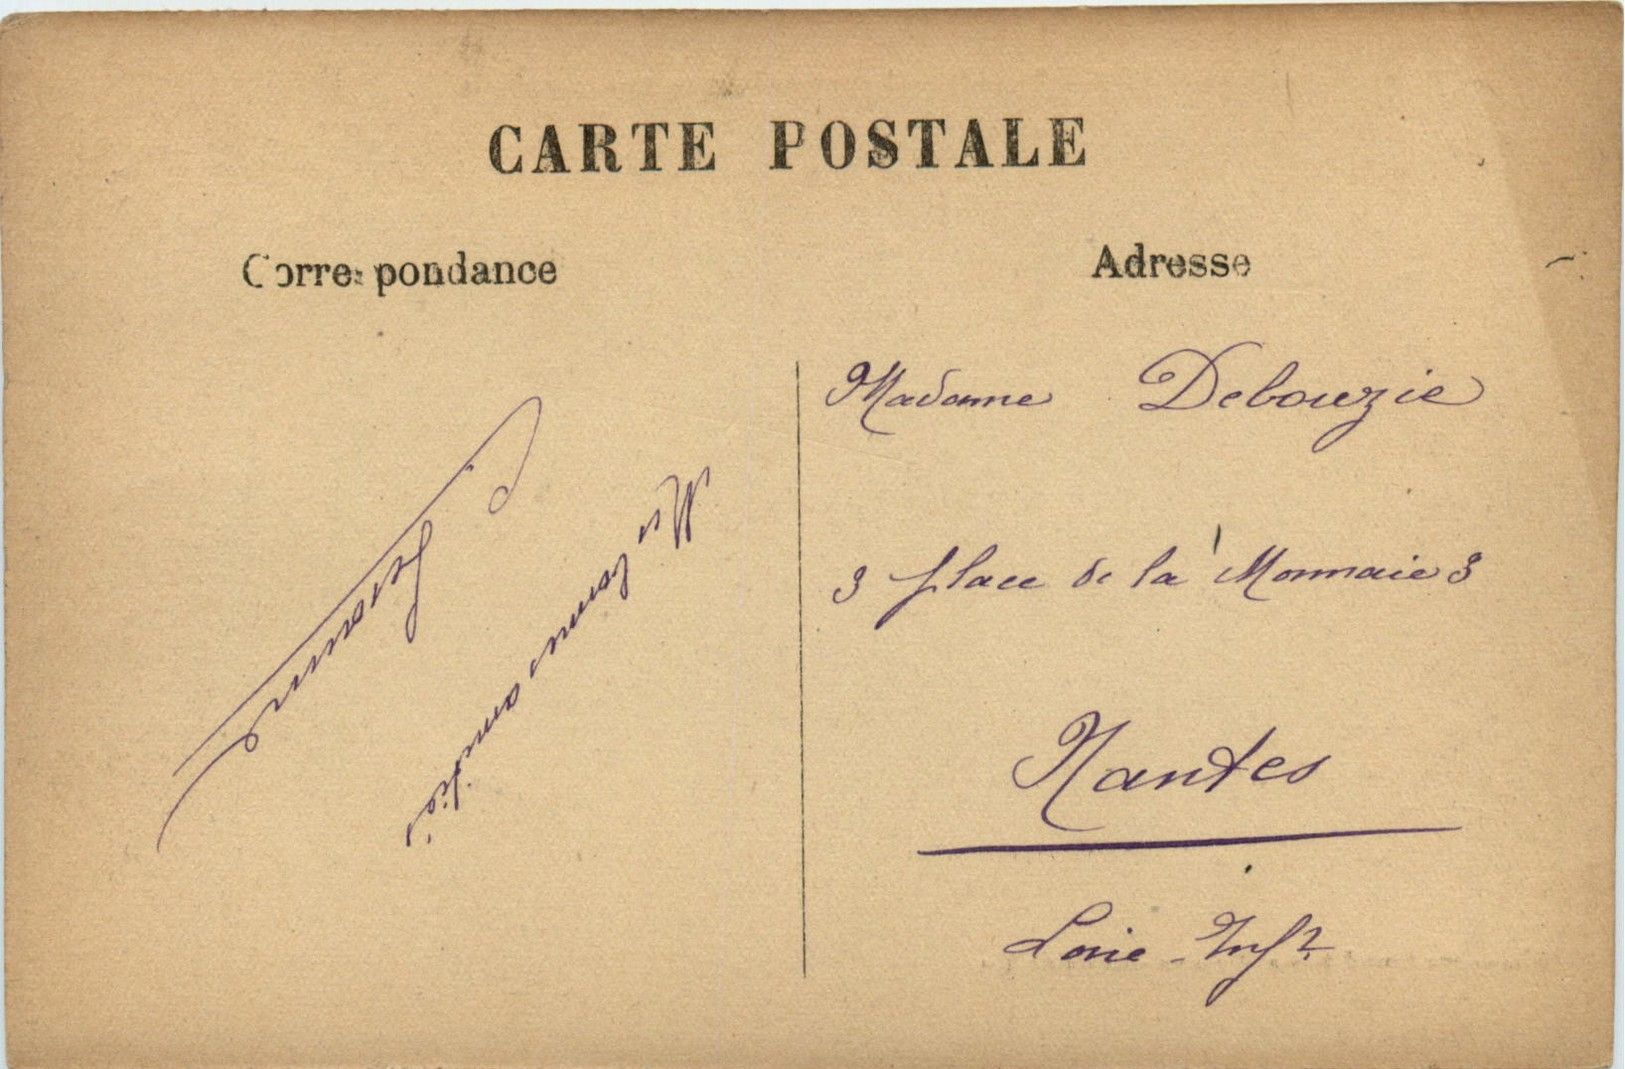 CARTE POSTALE
Correspondance
Adresse
Mes bonnes amitiés
Madame Debouzie
3 place de la Monnaie 3
Nantes
Loire-Infre